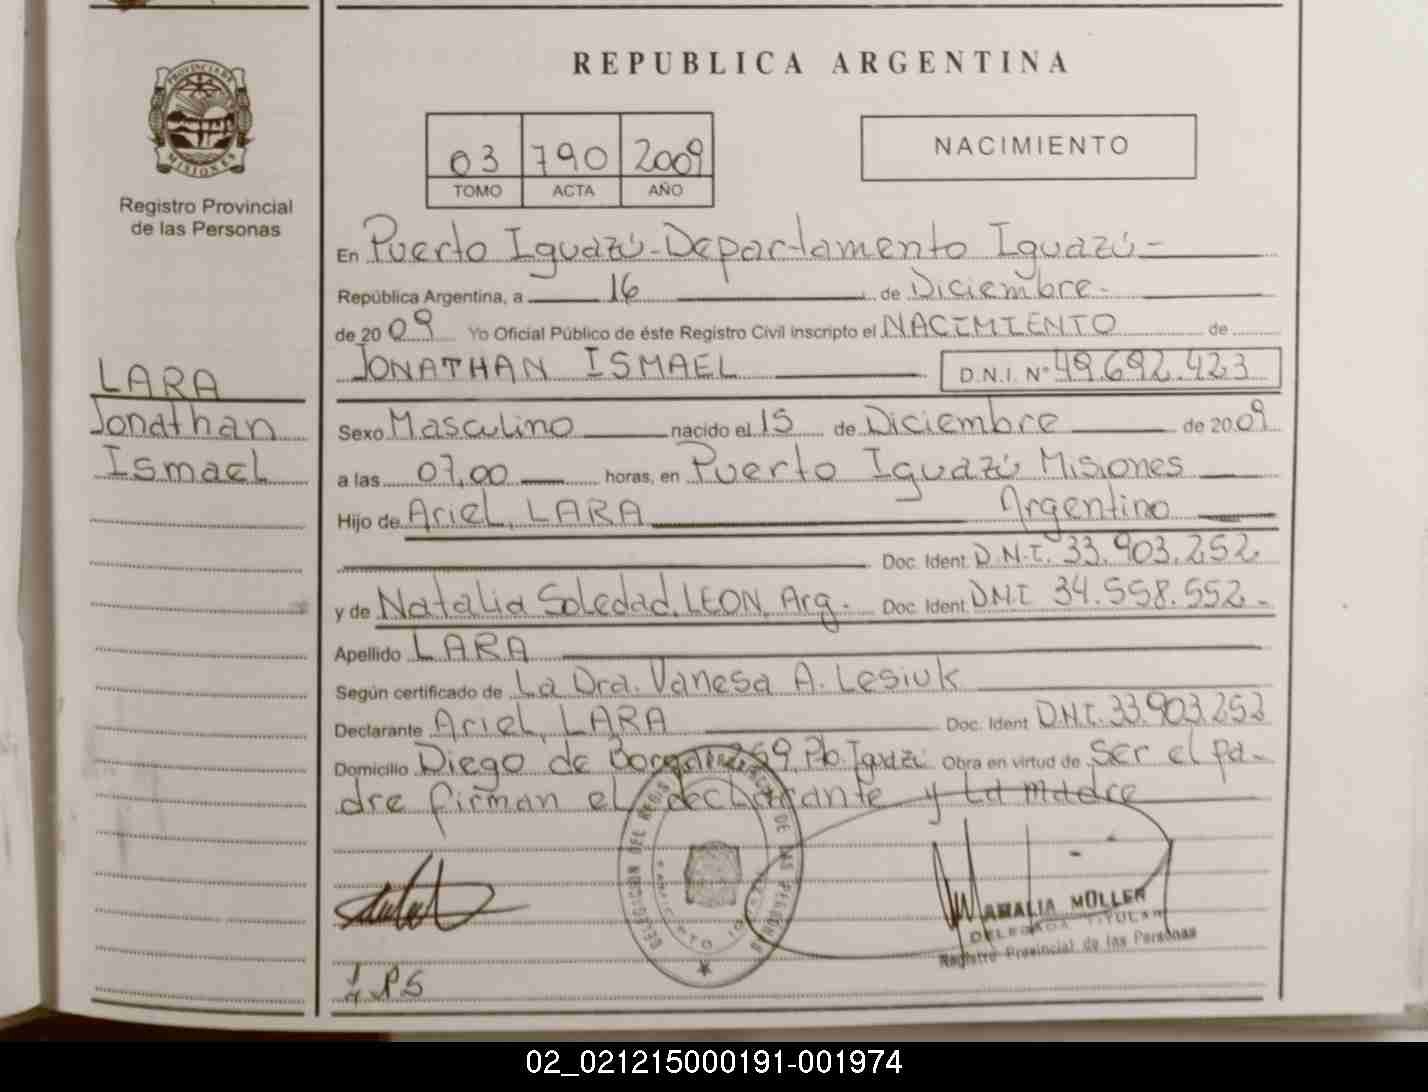 REPUBLICA ARGENTINA
PROVINCIA DE
MISIONES
Registro Provincial
de las Personas
03 790 2009
TOMO ACTA AÑO
NACIMIENTO
En Puerto Iguazú-Departamento Iguazú-
República Argentina, a 16 de Diciembre-
de 2009 Yo Oficial Público de éste Registro Civil inscripto el NACIMIENTO de
JONATHAN ISMAEL D.N.I. Nº 49.692.423
LARA
Jonathan
Ismael
Sexo Masculino nacido el 15 de Diciembre de 2009
a las 07,00 horas, en Puerto Iguazú Misiones
Hijo de Ariel, LARA Argentino
Doc. Ident. D.N.I. 33.903.252
y de Natalia Soledad, LEON, Arg. Doc. Ident. DNI 34.558.552-
Apellido LARA
Según certificado de La Dra. Vanesa A. Lesiuk
Declarante Ariel, LARA Doc. Ident. D.N.I. 33.903.252
Domicilio Diego de 269 Pto. Iguazú Obra en virtud de Ser el pa-
dre firman el declarante y la madre
AMALIA MÜLLER
DELEGADA TITULAR
Registro Provincial de las Personas
02_021215000191-001974